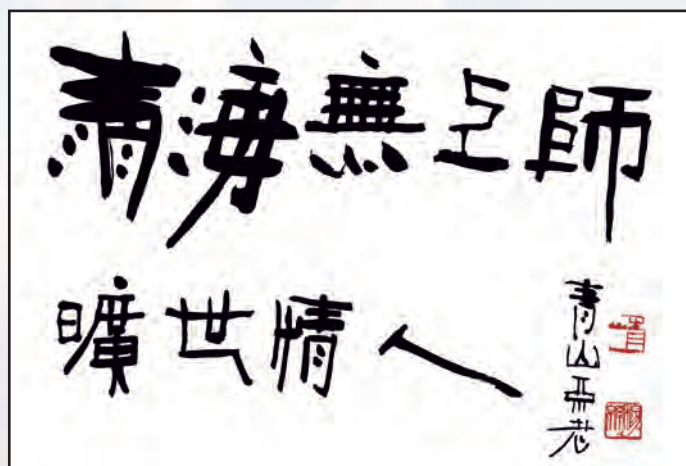 清海無上師
曠世情人
青山